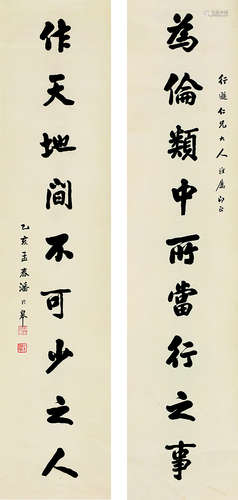 為倫類中所當行之事
行遜仁兄大人雅屬即正
作天地间不可少之人
乙亥孟春潘龄皋